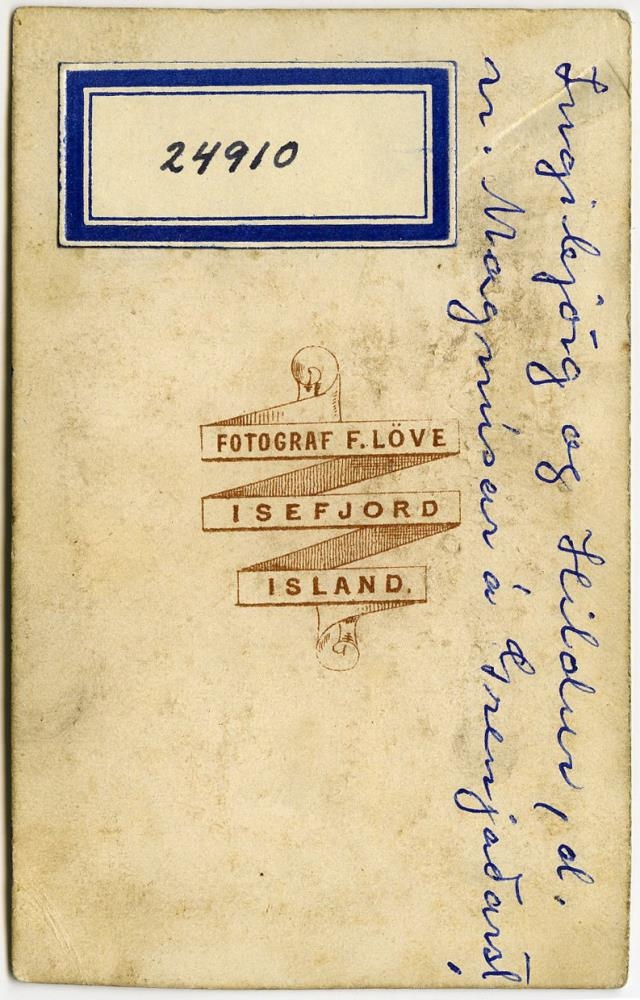 24910
FOTOGRAF F. LÖVE
ISEFJORD
ISLAND.
Ingibjörg og Hildur, d.
sr. Magnúsar á Grenjaðarst.